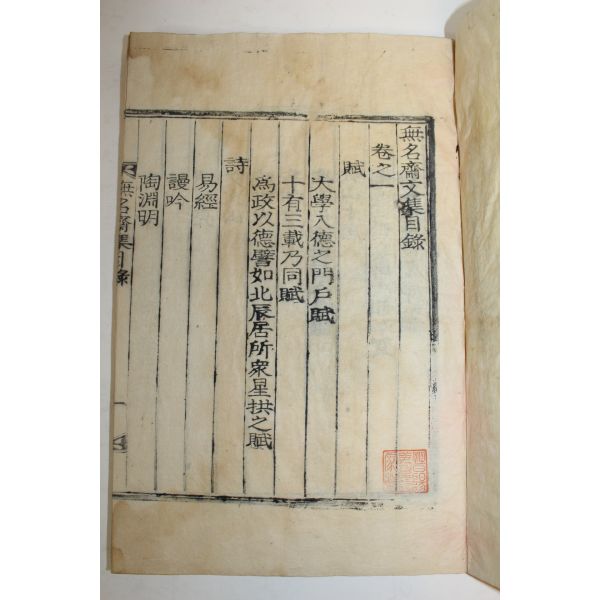 無名齋文集目錄
卷之一
賦
大學入德之門戶賦
十有三載乃同賦
爲政以德譬如北辰居所衆星拱之賦
詩
易經
謾吟
陶淵明
無名齋集目錄
一